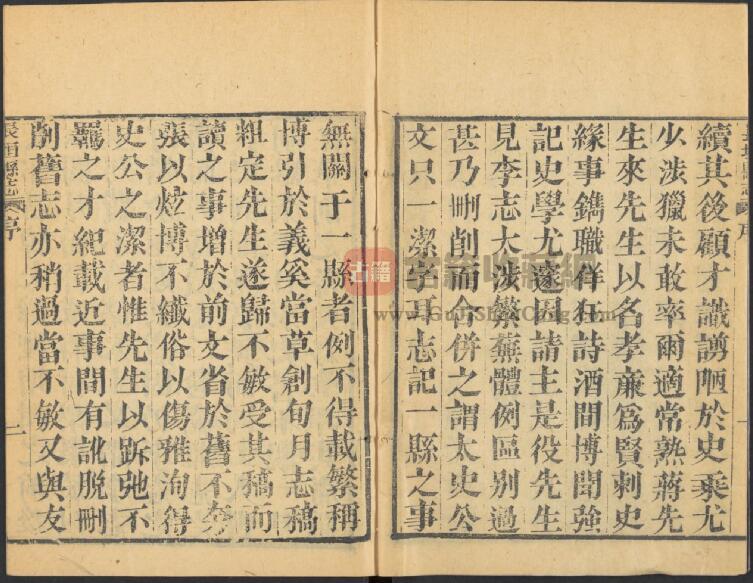 續其後顧才識謭陋於史乘尤
少涉獵未敢率爾適常熟蔣先
生來先生以名孝亷爲賢刺史
緣事鐫職佯狂詩酒間博聞強
記史學尤邃因請主是役先生
見李志太涉繁蕪體例區別過
甚乃刪削而合併之謂太史公
文只一潔字耳志記一縣之事
無關于一縣者例不得載繁稱
博引於義奚當草創旬月志稿
粗定先生遂歸不敏受其稿而
讀之事增於前文省於舊不夸
張以炫博不纖俗以傷雅洵得
史公之潔者惟先生以跅弛不
羈之才紀載近事間有訛脫刪
削舊志亦稍過當不敏又與友
長垣縣志 序
二
古籍
www.GujiShuCang.com